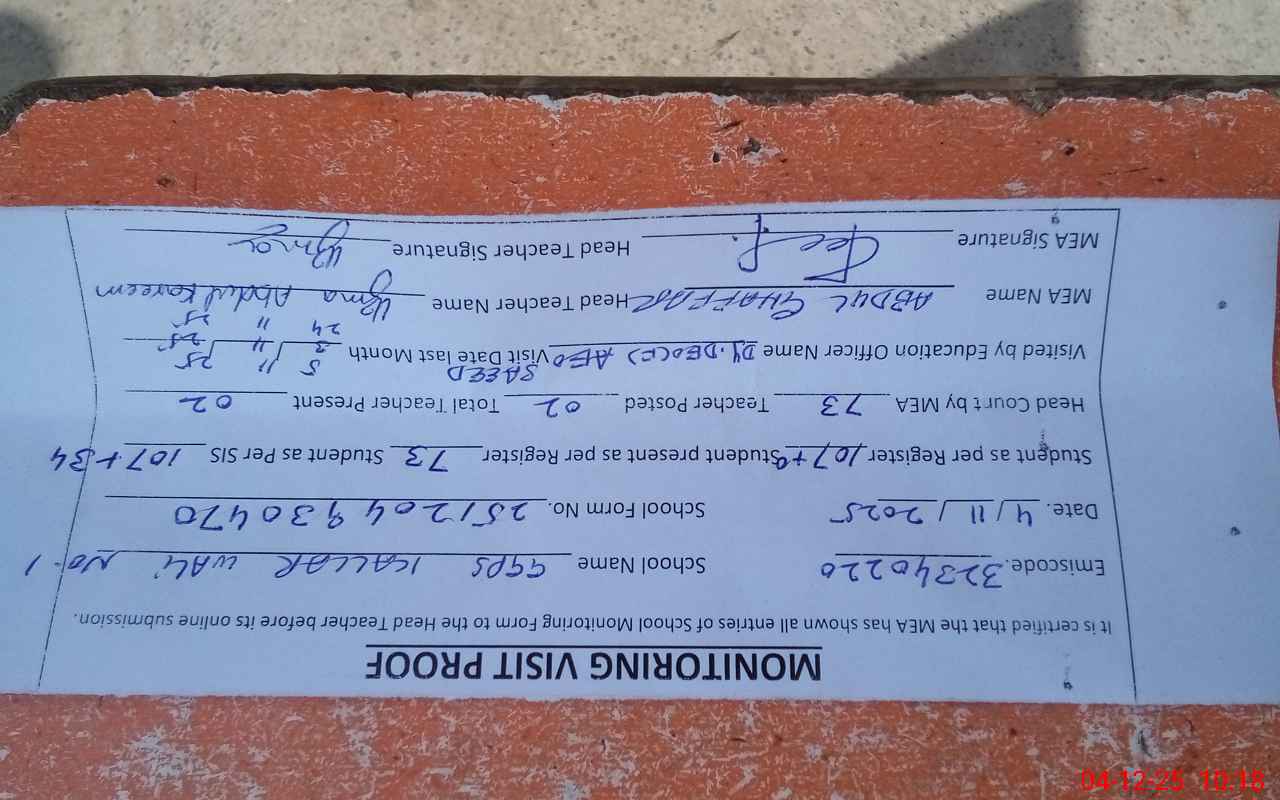 MONITORING VISIT PROOF
It is certified that the MEA has shown all entries of School Monitoring Form to the Head Teacher before its online submission.
Emiscode. 32340220 School Name GGPS KALLAR WALI NO. 1
Date. 4/11/2025 School Form No. 251204930470
Student as per Register 107+ Student present as per Register 73 Student as Per SIS 107+34
Head Court by MEA 73 Teacher Posted 02 Total Teacher Present 02
SAEED
Visited by Education Officer Name Dy. DEO(E) AEO Visit Date last Month 5/11/25
24 11 25
MEA Name ABDUL GHAFFAR Head Teacher Name Uzma Abdul Kareem
MEA Signature Head Teacher Signature Uzma
04-12-25 10:18